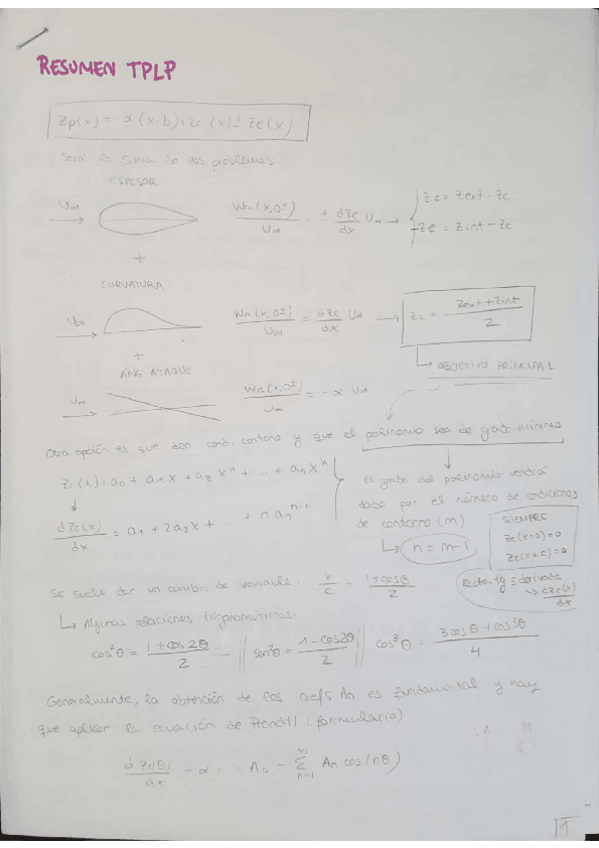 RESUMEN TPLP
Zp(x) = -α (x-b) + Zc (x) ± Ze(x)
Será la suma de los problemas:
ESPESOR
U∞ Wa(x,0±)/U∞ = ± dZe/dx U∞ → { Ze = Zext - Zc
-Ze = Zint - Zc
+
CURVATURA
U∞ Wa(x,0±)/U∞ = dZc/dx U∞ → Zc = (Zext + Zint)/2
+
ÁNG ATAQUE
↳ OBJETIVO PRINCIPAL
U∞ Wa(x,0±)/U∞ = -α U∞
Otra opción es que den cond. contorno y que el polinomio sea de grado mínimo
Zc(x) = a0 + a1x + a2 x^n + ... + an x^n
El grado del polinomio vendrá
dado por el número de condiciones
de contorno (m)
dZc(x)/dx = a1 + 2a2x + ... + n an^n-1
↳ n = m-1
SIEMPRE
Zc(x=0)=0
Zc(x=c)=0
Se suele dar un cambio de variable: x/c = (1+cosθ)/2
Recta tg ≡ derivada
↳ dZc(x)/dx
↳ Algunas relaciones trigonométricas:
cos²θ = (1+cos2θ)/2 || sen²θ = (1-cos2θ)/2 || cos³θ = (3cosθ + cos3θ)/4
Generalmente, la obtención de los coefs An es fundamental y hay
que aplicar la ecuación de (formulario)
dZc(θ)/dx - α = -A0 - Σ n=1 An cos(nθ)
1